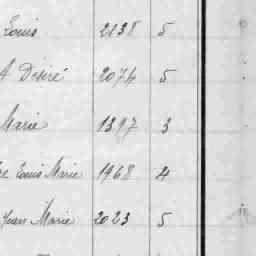 Louis 2138 5
A Désiré 2074 5
Marie 1397 3
Louis Marie 1968 4
Jean Marie 2023 5